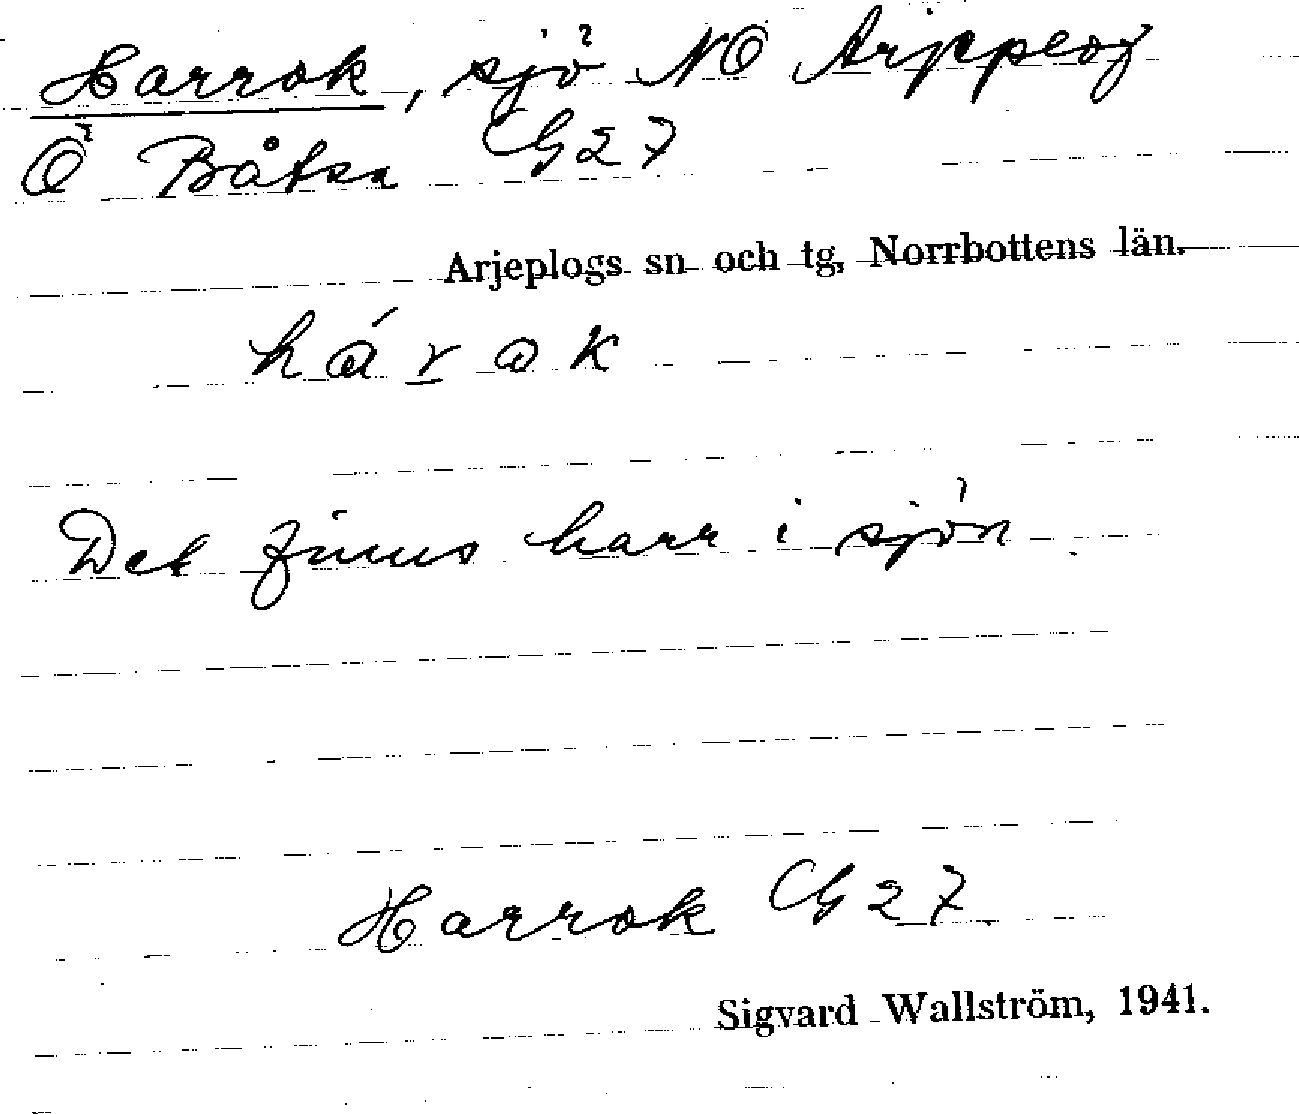 Harrok, sjö NO Arjeplog
Ö Båtsa G27
Arjeplogs sn och tg, Norrbottens län.
hárak
Det finns harr i sjön.
Harrok G27
Sigvard Wallström, 1941.